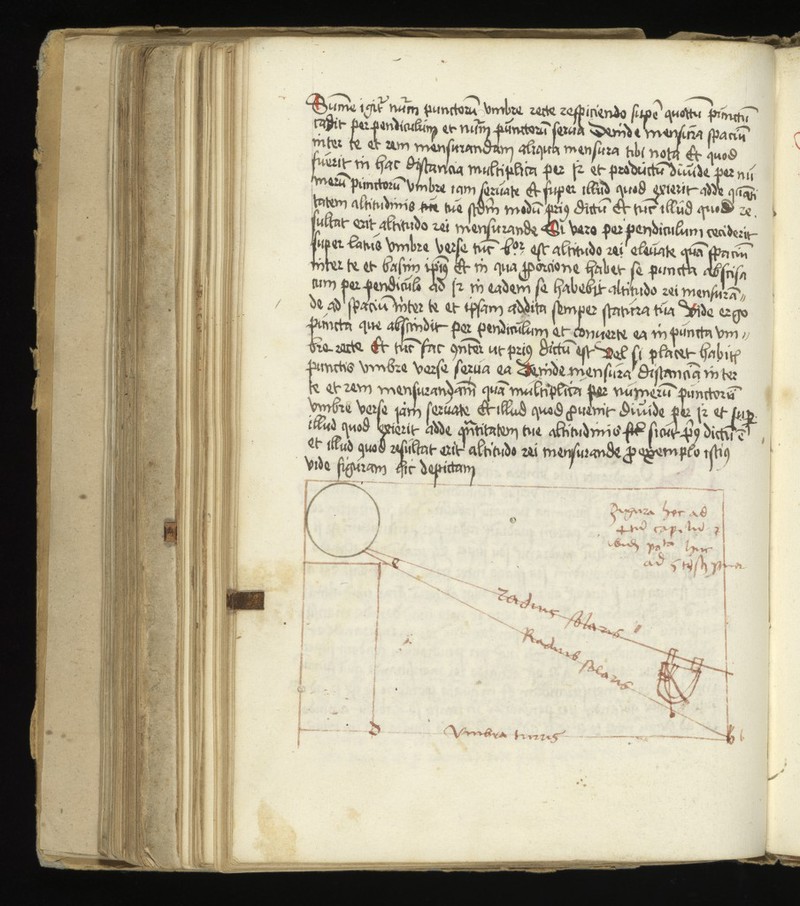 Sume igit̃ nũm punctorũ vmbre recte respiciendo super quotũ punctũ
cadit perpendiculum et nũm punctorũ serua Deinde mensura spaciũ
inter te et rem mensurandam aliqua mensura tibi nota Et quod
fuerit in hac distancia multiplica per 12 et productũ diuide per nu
merũ punctorũ vmbre iam seruate Et super illud quod exierit adde quãti
tatem altitudinis tue scdm modũ prius dictũ Et tũc illud quod re
sultat erit altitudo rei mensurande Si vero perpendiculum ceciderit
super latus vmbre verse tũc est altitudo rei eleuate quã spaciũ
inter te et basim ipius Et in qua proporcione habet se puncta abscisa
cum perpendiculo ad 12 in eadem se habebit altitudo rei mensurã
de ad spaciũ inter te et ipsam addita semper statura tua Vide ergo
puncta que abscindit perpendiculum et conuerte ea in puncta vm
bre recte Et tũc fac ut prius dictũ est Vel si placet habitis
punctis vmbre verse serua ea Deinde mensura distanciã inter
te et rem mensurandam quã multiplica per numerũ punctorũ
vmbre verse iam seruate Et illud quod prouenit diuide per 12 et super
illud quod exierit adde quantitatem tue altitudinis sicut prius dictũ est
et illud quod resultat erit altitudo rei mensurande pro exemplo istius
vide figuram hic depictam
figura hec ad
capitulũ
ad
e
radius solaris
Radius solaris
D
vmbra turris
b